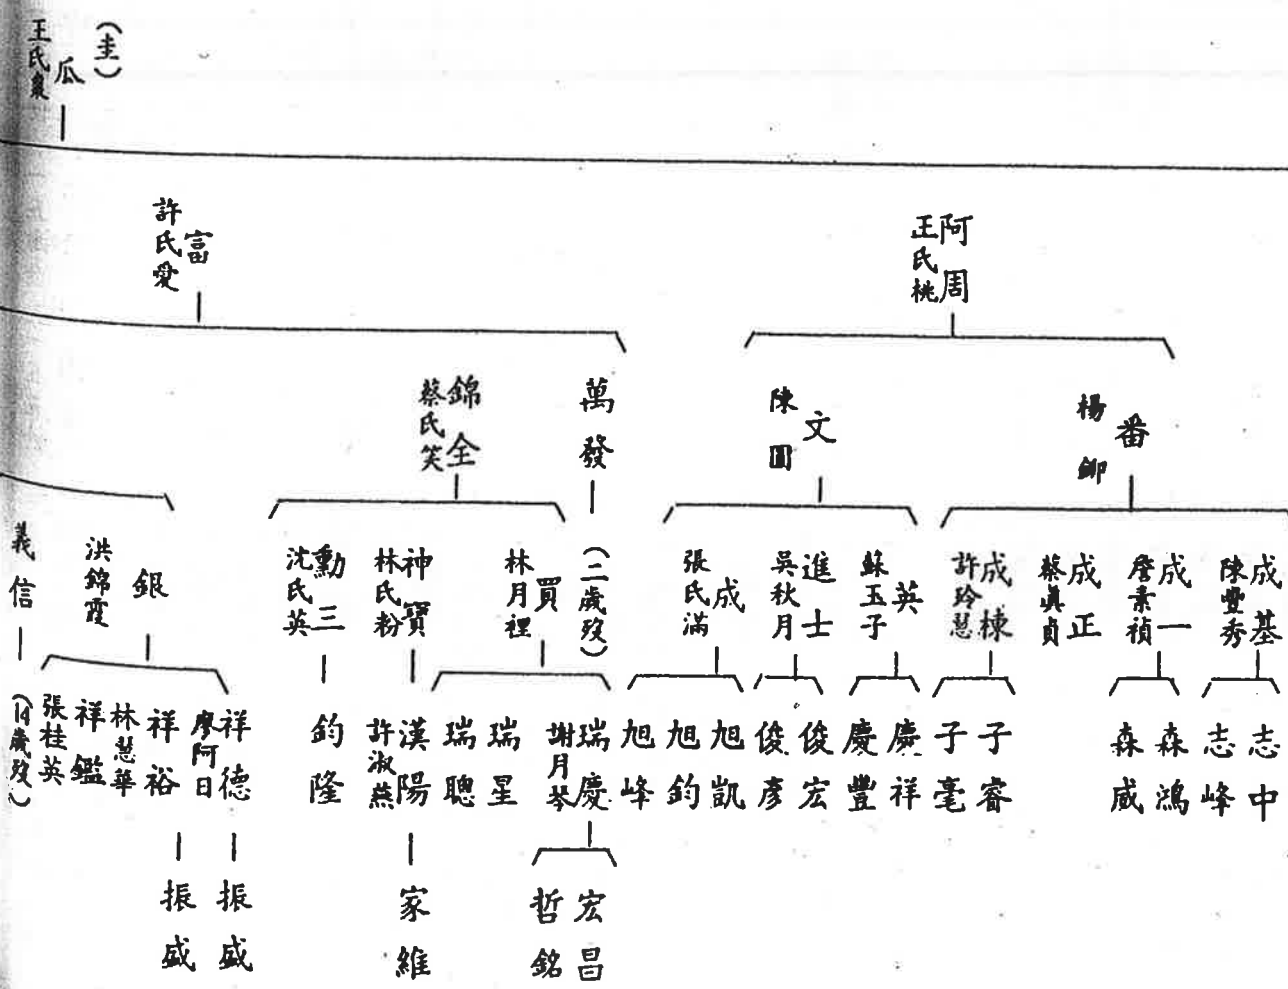 (圭)
瓜
王氏
阿周
王氏桃
富
許氏愛
番
楊
文
陳圓
萬發
錦全
蔡氏笑
成基
陳豐秀
成一
詹素禎
成正
蔡眞貞
成棟
許玲慧
英
蘇玉子
進士
吳秋月
成
張氏滿
(二歲歿)
買
林月裡
神寶
林氏粉
勳三
沈氏英
銀
洪錦霞
義信
志中
志峰
森鴻
森威
子睿
子毫
慶祥
慶豐
俊宏
俊彥
旭凱
旭鈞
旭峰
瑞慶
謝月琴
瑞星
瑞聰
漢陽
許淑燕
鈞隆
祥德
廖阿日
祥裕
林慧華
祥鑑
張桂英
(14歲歿)
宏昌
哲銘
家維
振盛
振盛